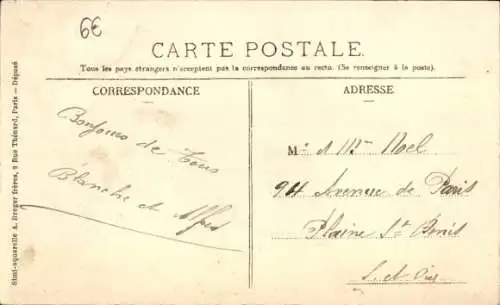 6€
CARTE POSTALE.
Tous les pays étrangers n'acceptent pas la correspondance au recto. (Se renseigner à la poste).
CORRESPONDANCE
ADRESSE
Bonjours de Tous
Blanche et Alfred
M. et Mme Noel
94 Avenue de Paris
Plaine St Denis
Simi-aquarelle A. Breger frères, 9 Rue Thénard, Paris — Déposé